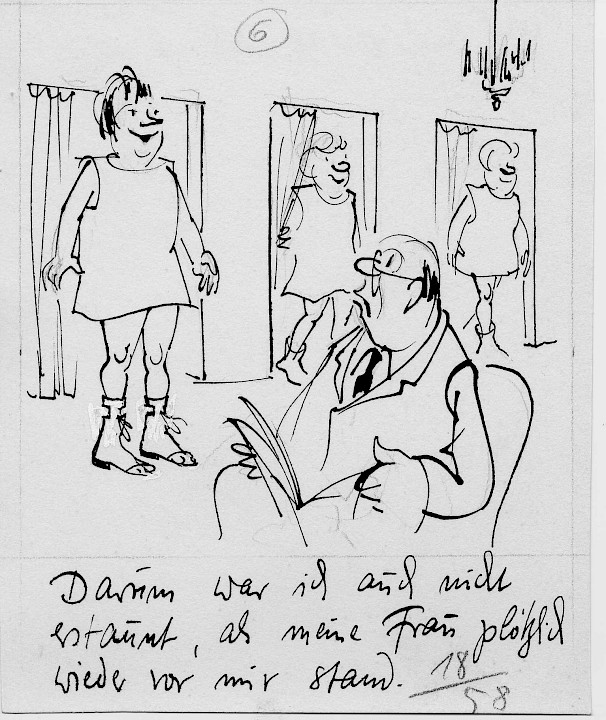 6
Darum war ich auch nicht
erstaunt, als meine Frau plötzlich
wieder vor mir stand. 18/58